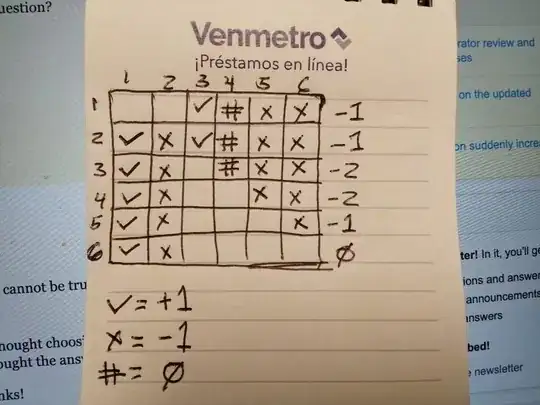 uestion?
Venmetro
¡Préstamos en línea!
rator review and
ses
on the updated
on suddenly increa
1 2 3 4 5 6
1 ✓ # x x -1
2 ✓ x ✓ # x x -1
3 ✓ x # x x -2
4 ✓ x x x -2
5 ✓ x x -1
6 ✓ x Ø
✓ = +1
x = -1
# = Ø
cannot be tru
nought choos
ought the ans
nks!
ter! In it, you'll ge
ions and answe
announcements
nswers
bed!
e newsletter